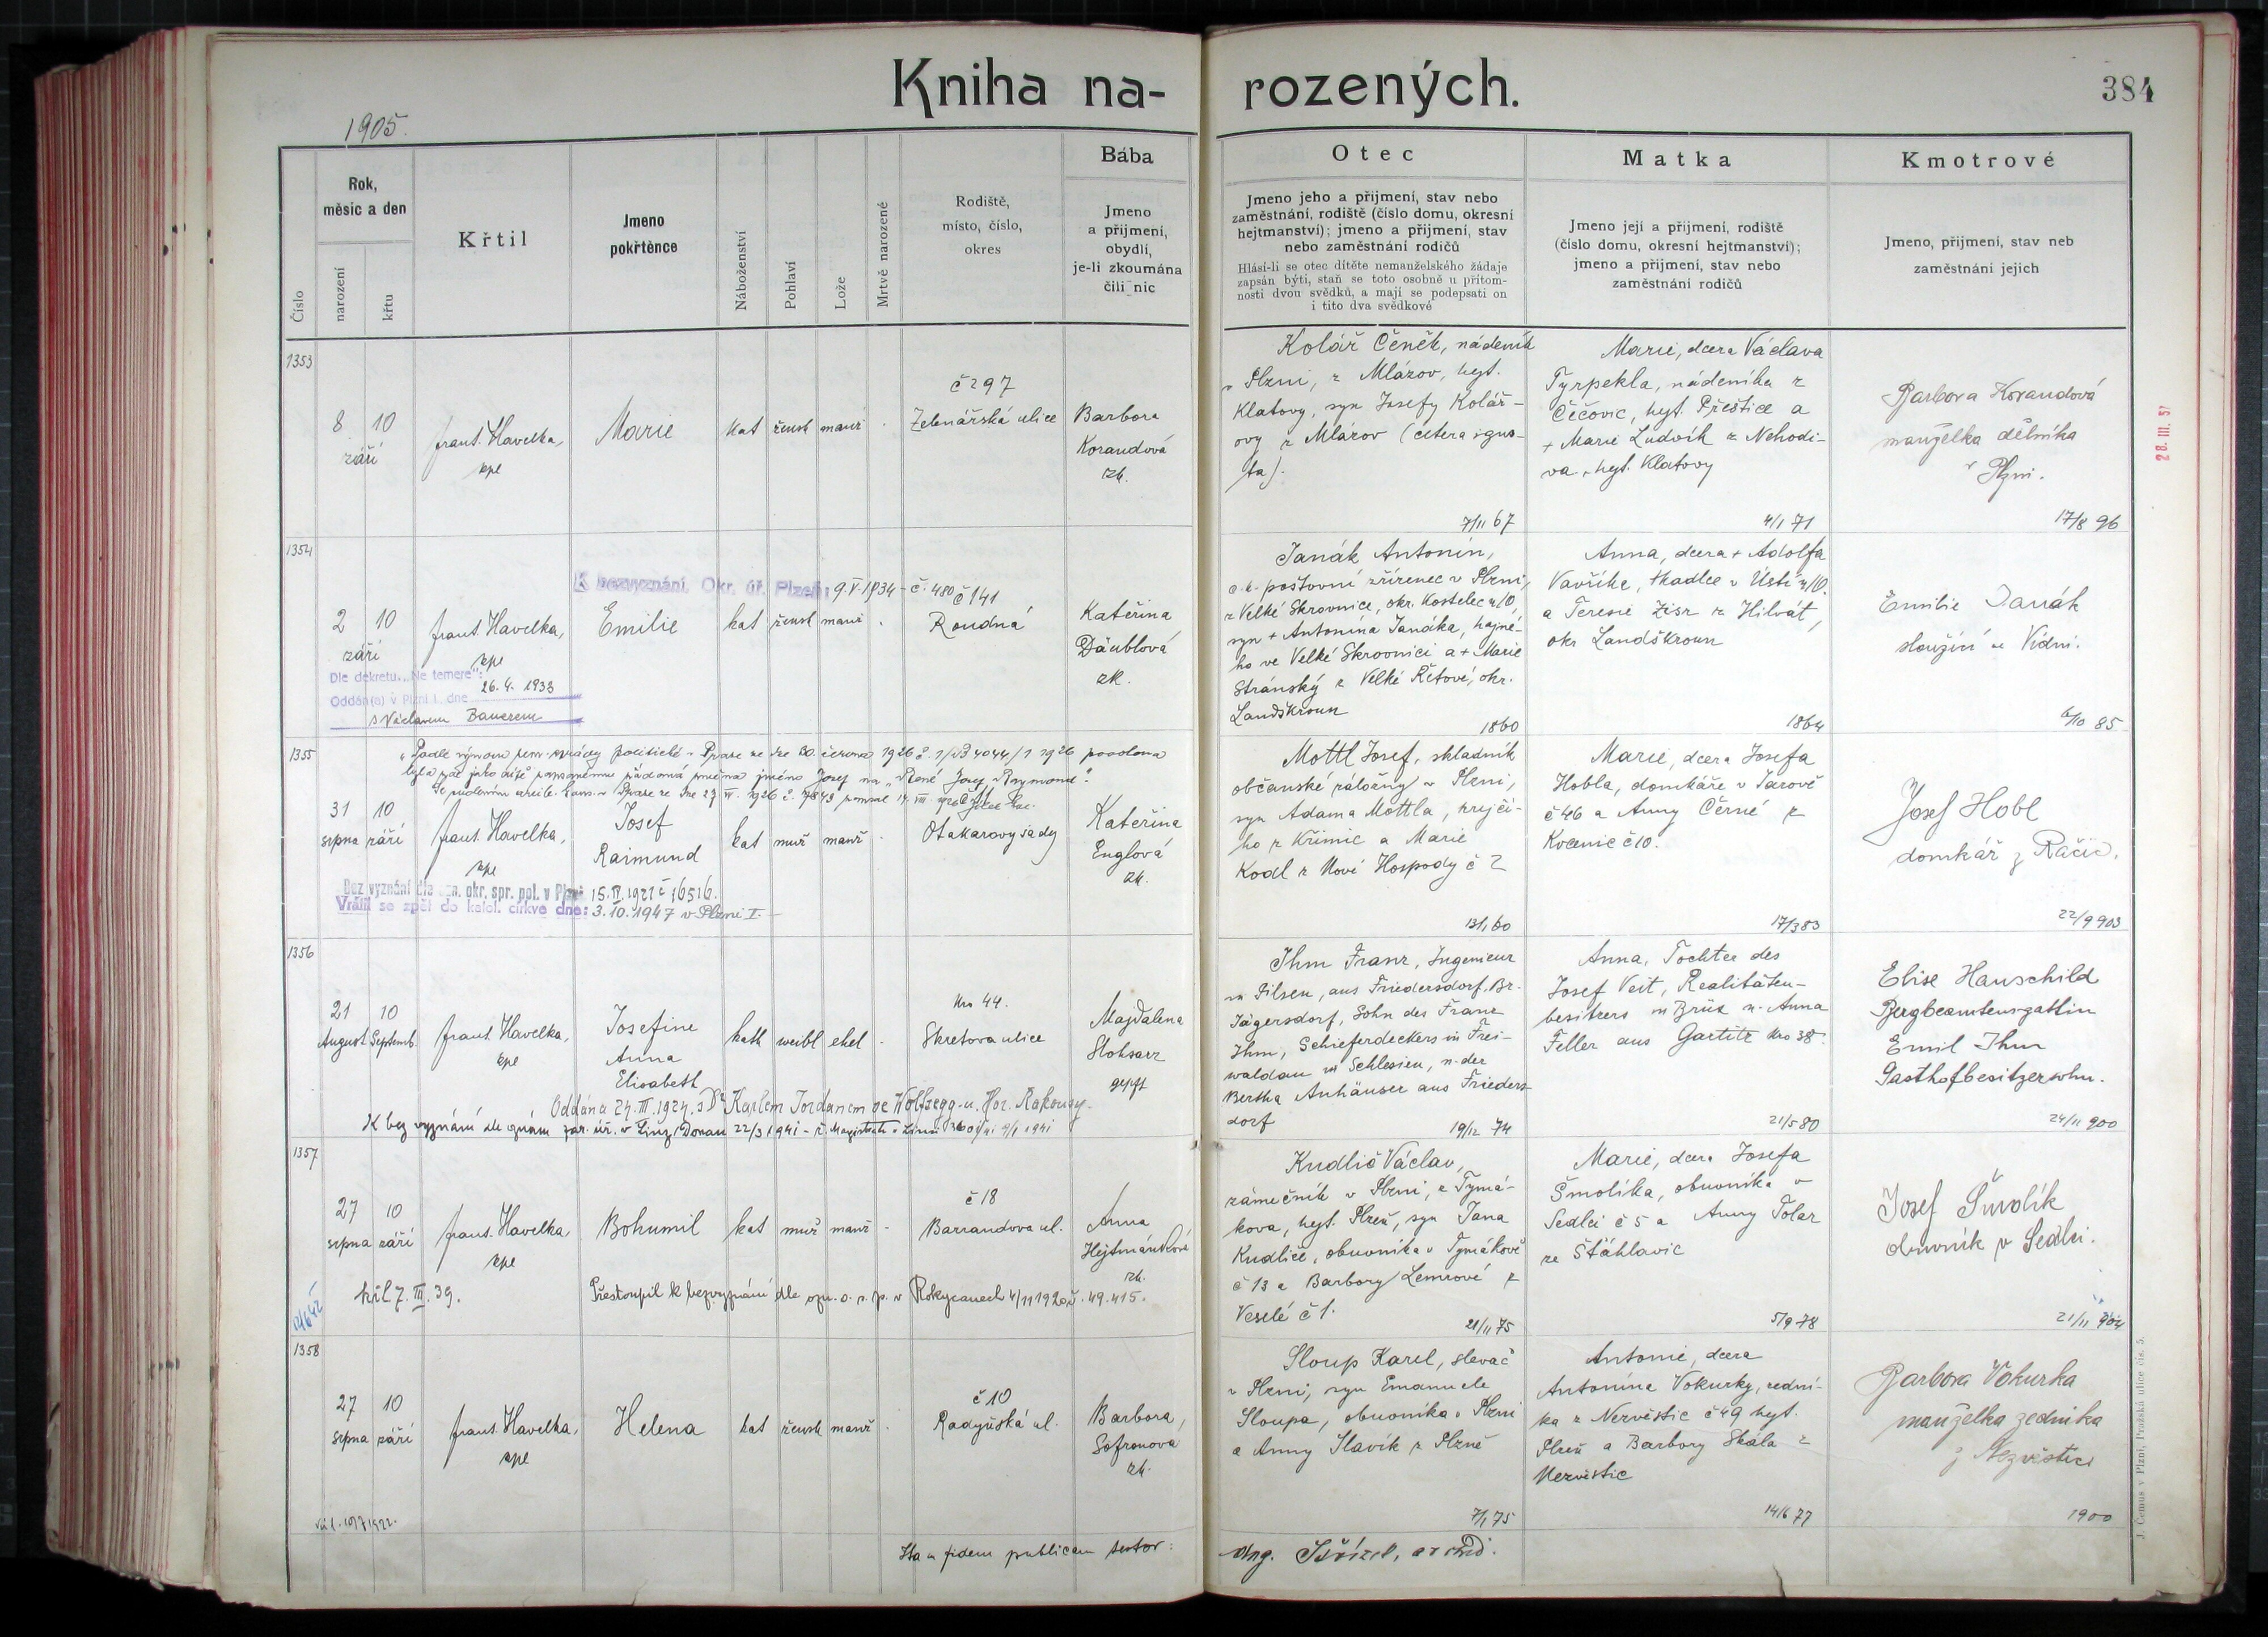 Kniha na-
rozených.
384
1905.
Číslo
Rok,
měsíc a den
narození
křtu
Křtil
Jmeno
pokřtěnce
Náboženství
Pohlaví
Lože
Mrtvě narozené
Rodiště,
místo, číslo,
okres
Bába
Jmeno
a přijmení,
obydlí,
je-li zkoumána
čili nic
Otec
Jmeno jeho a přijmení, stav nebo
zaměstnání, rodiště (číslo domu, okresní
hejtmanství); jmeno a přijmení, stav
nebo zaměstnání rodičů
Hlásí-li se otec dítěte nemanželského žádaje
zapsán býti, staň se toto osobně u přítom-
nosti dvou svědků, a mají se podepsati on
i tito dva svědkové
Matka
Jmeno její a přijmení, rodiště
(číslo domu, okresní hejtmanství);
jmeno a přijmení, stav nebo
zaměstnání rodičů
Kmotrové
Jmeno, přijmení, stav neb
zaměstnání jejich
1353
8 10
září
frant. Havelka,
kpl
Marie
kat žensk manž
č 297
Zelenářská ulice
Barbora
Korandová
zk.
Kolář Čeněk, nádeník
v Plzni, z Mlázov, hejt.
Klatovy, syn Josefy Kolář-
ovy z Mlázov (cetera igno-
ta).
7/11 67
Marie, dcera Václava
Tyrpekla, nádeníka z
Čečovic, hejt. Přeštice a
+ Marie Ludvík z Nehodi-
va, hejt. Klatovy
4/1 71
Barbora Korandová
manželka dělníka
v Plzni.
17/8 96
28. III. 57
1354
K bezvyznání, Okr. úř. Plzeň: 9.V.1934 - č. 480
2 10
září
frant. Havelka,
kpl
Emilie
kat žensk manž
č 141
Roudná
Kateřina
Däublová
zk.
Dle dekretu „Ne temere":
Oddán(a) v Plzni I., dne 26.4. 1933
s Václavem Bauerem
Janák Antonín,
c.k. poštovní zřízenec v Plzni,
z Velké Skrovnice, okr. Kostelec n/O,
syn + Antonína Janáka, hajné-
ho ve Velké Skrovnici a + Marie
Stránský z Velké Řetové, okr.
Landškroun
1860
Anna, dcera + Adolfa
Vavřike, tkadlce v Ústí n/O.
a Teresie Zisr z Hilvát,
okr Landškroun
1864
Emilie Janák
sloužící ve Vídni.
6/10 85
1355
31 10
srpna září
frant. Havelka,
kpl
Josef
Raimund
kat muž manž
Otakarovy sady
Kateřina
Englová
zk.
Bez vyznání dle ozn. okr. spr. pol. v Plzni 15.IV.1921 č 16516.
Vrátil se zpět do katol. církve dne: 3.10.1947 v Plzni I.
Mottl Josef, skladník
občanské záložny v Plzni,
syn Adama Mottla, krejčí-
ho z Křimic a Marie
Kodl z Nové Hospody č 2
13/1 60
Marie, dcera Josefa
Hobla, domkáře v Jarově
č 46 a Anny Černé z
Kocenic č 10.
17/3 83
Josef Hobl
domkář z Račic.
22/9 903
1356
21 10
August Septemb.
frant. Havelka,
kpl
Josefine
Anna
Elisabeth
kath weibl ehel
Nro 44.
Skretova ulice
Majdalena
Slohsarz
gepft
Oddána 24.III.1924. s Dr Karlem Jordanem ve Wolfsegg u. Hor. Rakousy
K bez vyznání dle oznám far. úř. v Linz, Donau 22/3 1941
Ihm Franz, Ingenieur
in Pilsen, aus Friedersdorf, Br.
Jägersdorf, Sohn des Franz
Ihm, Schieferdeckers in Frei-
waldau in Schlesien, u. der
Bertha Anhäuser aus Frieders-
dorf
19/12 74
Anna, Tochter des
Josef Veit, Realitäten-
besitzers in Brüx u. Anna
Feller aus Gartitz Nro 38.
21/5 80
Elise Hauschild
Bergbeamtensgattin
Emil Ihm
Gasthofbesitzersohn.
24/11 900
1357
27 10
srpna září
frant. Havelka,
kpl
Bohumil
kat muž manž
č 18
Barrandova ul.
Anna
Hejtmánková
zk.
křl 7. III. 39.
Přestoupil k bezvyznání dle ozn. o. s. p. v Rokycanech 4/11 1920 č. 49.415.
Kudlič Václav,
zámečník v Plzni, z Tymá-
kova, hejt. Plzeň, syn Jana
Kudliče, obuvníka v Tymákově
č 13 a Barbory Lemrové z
Veselé č 1.
21/11 75
Marie, dcera Josefa
Šmolíka, obuvníka v
Sedlci č 5 a Anny Tolar
ze Šťáhlavic
5/9 78
Josef Šmolík
obuvník v Sedlci.
21/11 904
1358
27 10
srpna září
frant. Havelka,
kpl
Helena
kat žensk manž
č 10
Radyňská ul.
Barbora
Sofronová
zk.
Sloup Karel, slevač
v Plzni, syn Emanuele
Sloupa, obuvníka v Plzni
a Anny Slavík z Plzně
7/1 75
Antonie, dcera
Antonína Vokurky, zední-
ka z Nezvěstic č 49 hejt.
Plzeň a Barbory Skála z
Nezvěstic
14/6 77
Barbora Vokurka
manželka zedníka
z Nezvěstic
1900
Ita in fidem publicam testor:
J. Čemus v Plzni, Pražská ulice čís. 5.